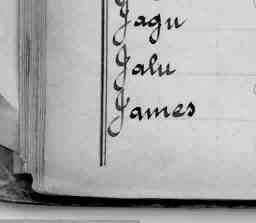 Jagu
Jalu
James